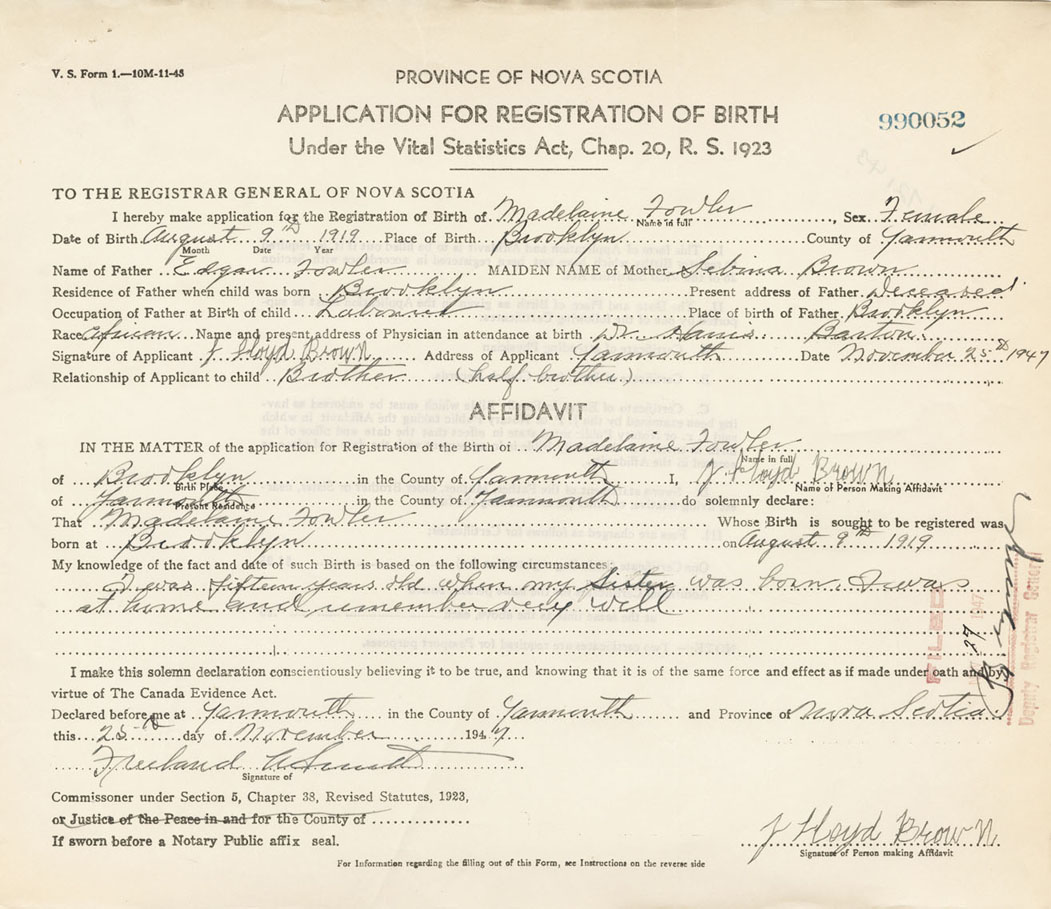 V. S. Form 1.—10M-11-43
PROVINCE OF NOVA SCOTIA
APPLICATION FOR REGISTRATION OF BIRTH
990052
Under the Vital Statistics Act, Chap. 20, R. S. 1923
TO THE REGISTRAR GENERAL OF NOVA SCOTIA
I hereby make application for the Registration of Birth of Madelaine Fowler, Sex Female
Name in full
Date of Birth August 9th 1919 Place of Birth Brooklyn County of Yarmouth
Month Date Year
Name of Father Edgar Fowler MAIDEN NAME of Mother Sebina Brown
Residence of Father when child was born Brooklyn Present address of Father Deceased
Occupation of Father at Birth of child Labourer Place of birth of Father Brooklyn
Race African Name and present address of Physician in attendance at birth Dr. Harris Barton
Signature of Applicant J Lloyd Brown Address of Applicant Yarmouth Date November 25th 1947
Relationship of Applicant to child Brother (half brother)
AFFIDAVIT
IN THE MATTER of the application for Registration of the Birth of Madelaine Fowler
Name in full
of Brooklyn in the County of Yarmouth I, J Lloyd Brown
Birth Place Name of Person Making Affidavit
of Yarmouth in the County of Yarmouth do solemnly declare:
Present Residence
That Madelaine Fowler Whose Birth is sought to be registered was
born at Brooklyn on August 9th 1919
My knowledge of the fact and date of such Birth is based on the following circumstances:
I was fifteen years old when my sister was born. I was
at home and remember very well
I make this solemn declaration conscientiously believing it to be true, and knowing that it is of the same force and effect as if made under oath and by
virtue of The Canada Evidence Act.
Declared before me at Yarmouth in the County of Yarmouth and Province of Nova Scotia
this 25th day of November 1947
Freeland
Signature of
Commissoner under Section 5, Chapter 38, Revised Statutes, 1923,
or Justice of the Peace in and for the County of
If sworn before a Notary Public affix seal.
J Lloyd Brown
Signature of Person making Affidavit
For Information regarding the filling out of this Form, see Instructions on the reverse side
FILED
27 1947
Deputy Registrar General